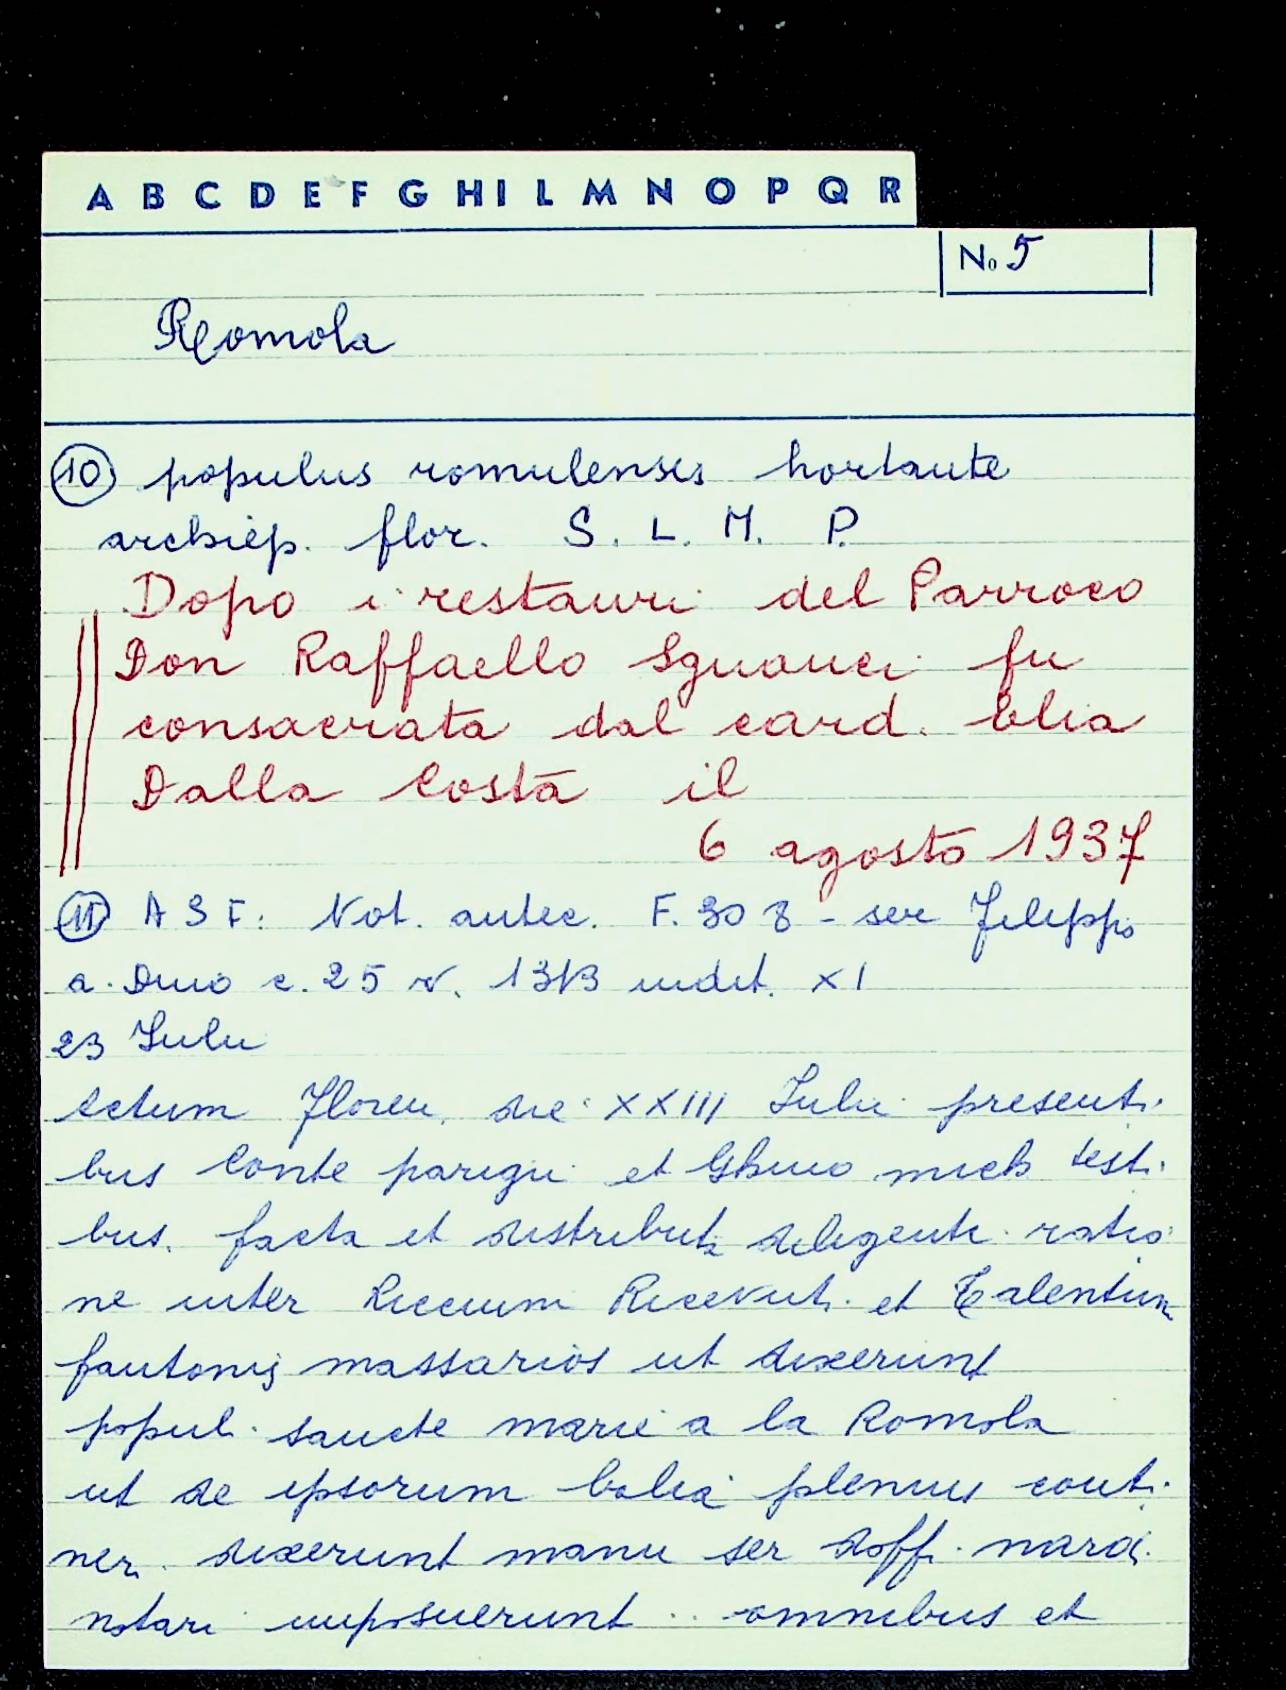 A B C D E F G H I L M N O P Q R
No 5
Romola
10 populus romulensis hortante
archiep. flor. S. L. M. P.
Dopo i restauri del Parroco
Don Raffaello Sguanci fu
consacrata dal card. Elia
Dalla Costa il
6 agosto 1937
11 A S F: Not. antec. F. 308 - ser Filippo
a. Dino c. 25 v. 1313 indit. XI
23 Iulii
Actum Floren. die XXIII Iulii presenti
bus Conte parigii et Ghino mich testi
bus. facta et distributa diligenti ratio
ne inter Riccium Ricevuti et Talentum
fantonis massarios ut dixerunt
populi sancte marie a la Romola
ut de ipsorum balia plenius conti
ner. dixerunt manu ser doffi nardi
notari imposuerunt .. omnibus et